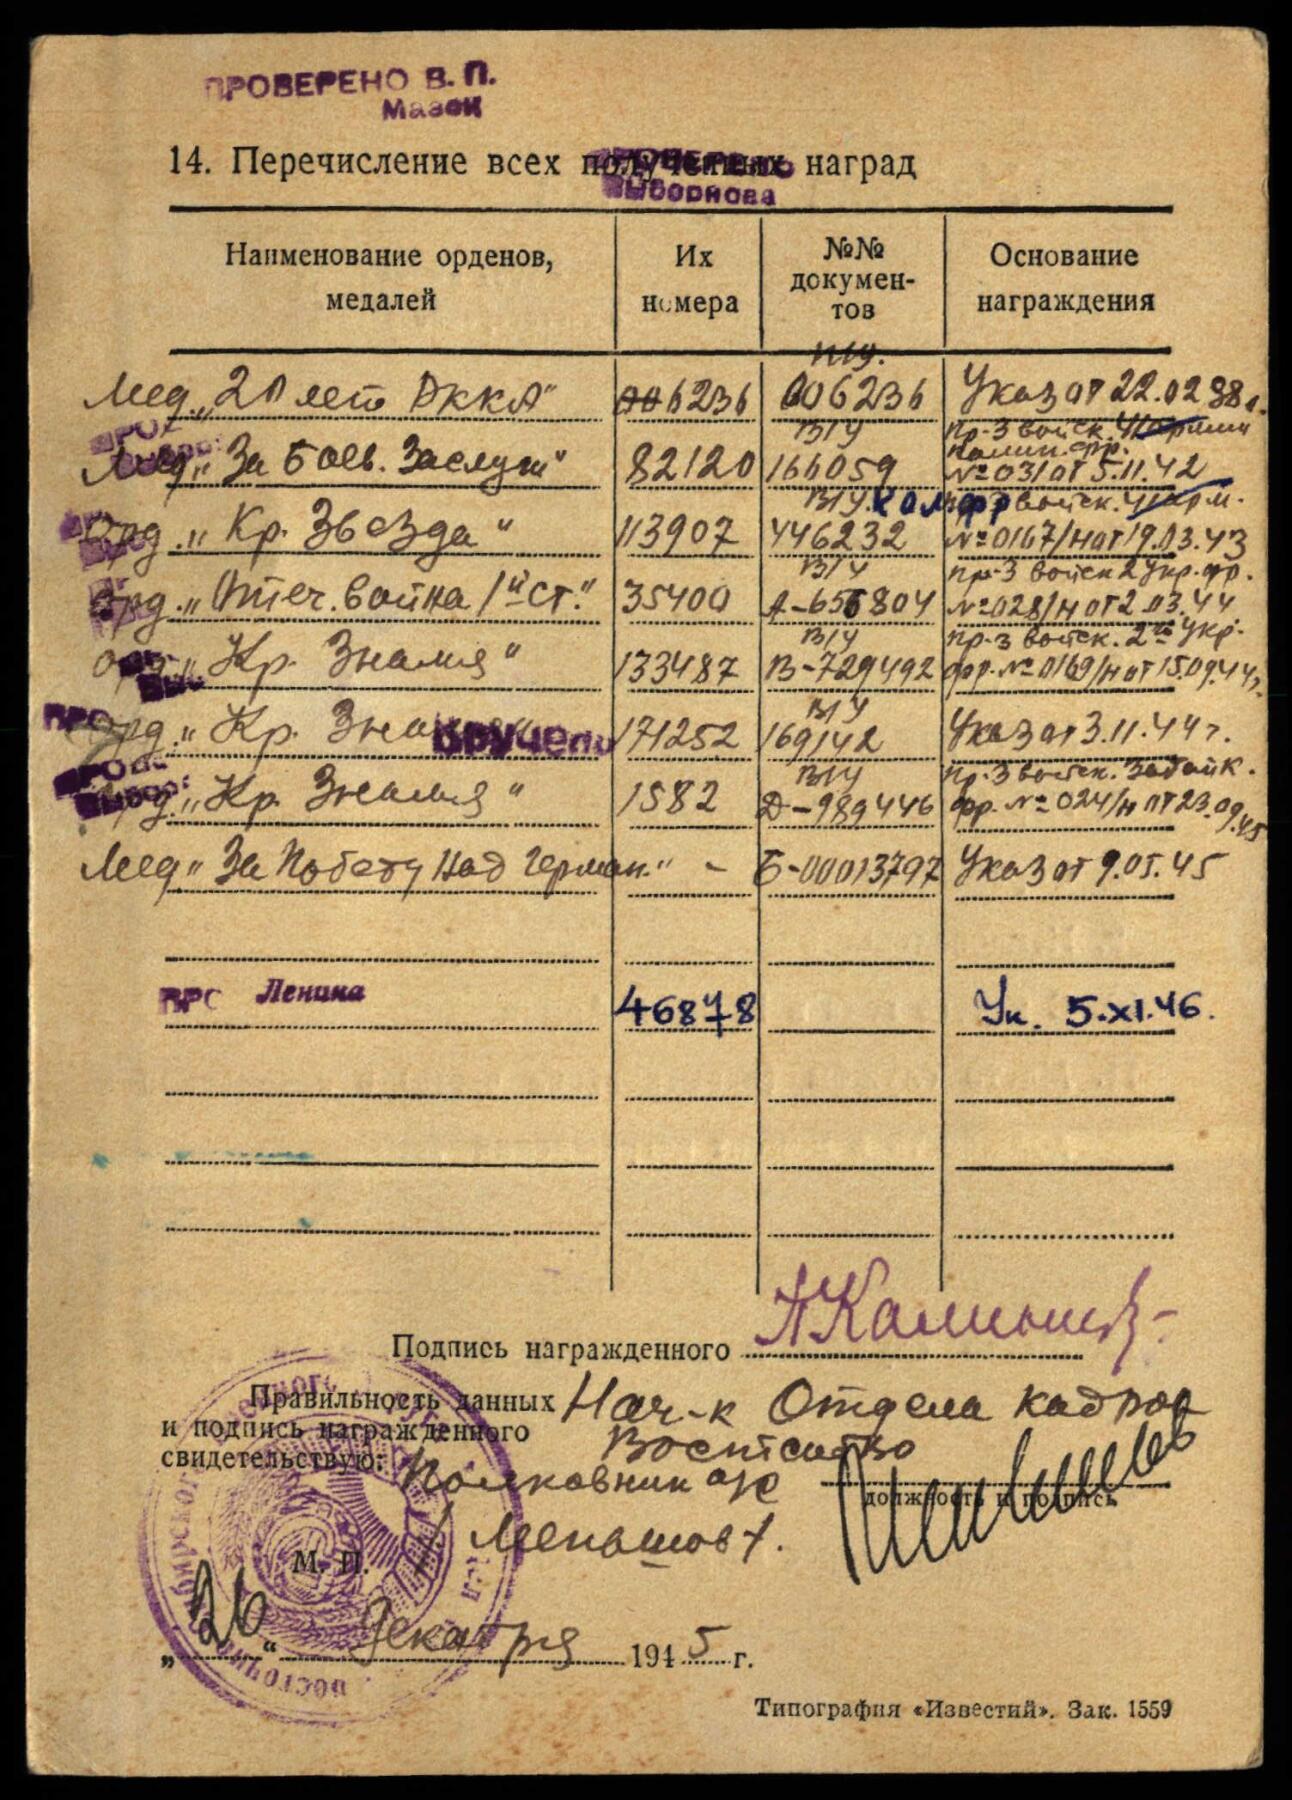 ПРОВЕРЕНО В. П.
Мазок
14. Перечисление всех полученных наград
Выборнова
Наименование орденов, медалей
Их номера
№№ документов
Основание награждения
Мед. „20 лет РККА" 006236 006236 Указ от 22.02.38 г.
Мед „За Боев. Заслуги" 82120 В/У 166059 Пр-з войск. Калин. фр. №031 от 5.11.42
Орд. „Кр. Звезда" 113907 В/У 446232 Калфр войск. №0167/н от 19.03.43
Орд. „Отеч. Война 1й ст." 35400 В/У А-656804 Пр-з войск 2 Укр. фр. №028/н от 2.03.44
Орд „Кр. Знамя" 133487 В/У В-729492 Пр-з войск. 2го Укр. фр. №0169/н от 15.09.44 г.
Орд. „Кр. Знамя" Вручены 171252 В/У 169142 Указ от 3.11.44 г.
Орд. „Кр. Знамя" 1582 В/У Д-989446 Пр-з войск. Забайк. фр. №024/н от 23.09.45
Мед „За Победу Над Герман." - Б-00013797 Указ от 9.05.45
ПРО Ленина 46878 Ук. 5.XI.46.
Подпись награжденного
Правильность данных Нач-к Отдела кадров
и подпись награжденного
свидетельствую: Полковник а/с
должность и подпись
/Меньшов/.
М. П.
„26" Декабря 1945 г.
Типография «Известий». Зак. 1559